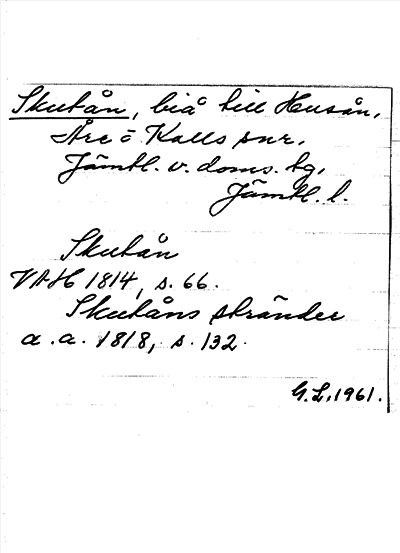 Skutån, biå till Husån,
Åre o Kalls snr,
Jämtl. v. doms. tg,
Jämtl. l.
Skutån
VAH 1814, s. 66.
Skutåns stränder
a. a. 1818, s. 132.
G.L. 1961.